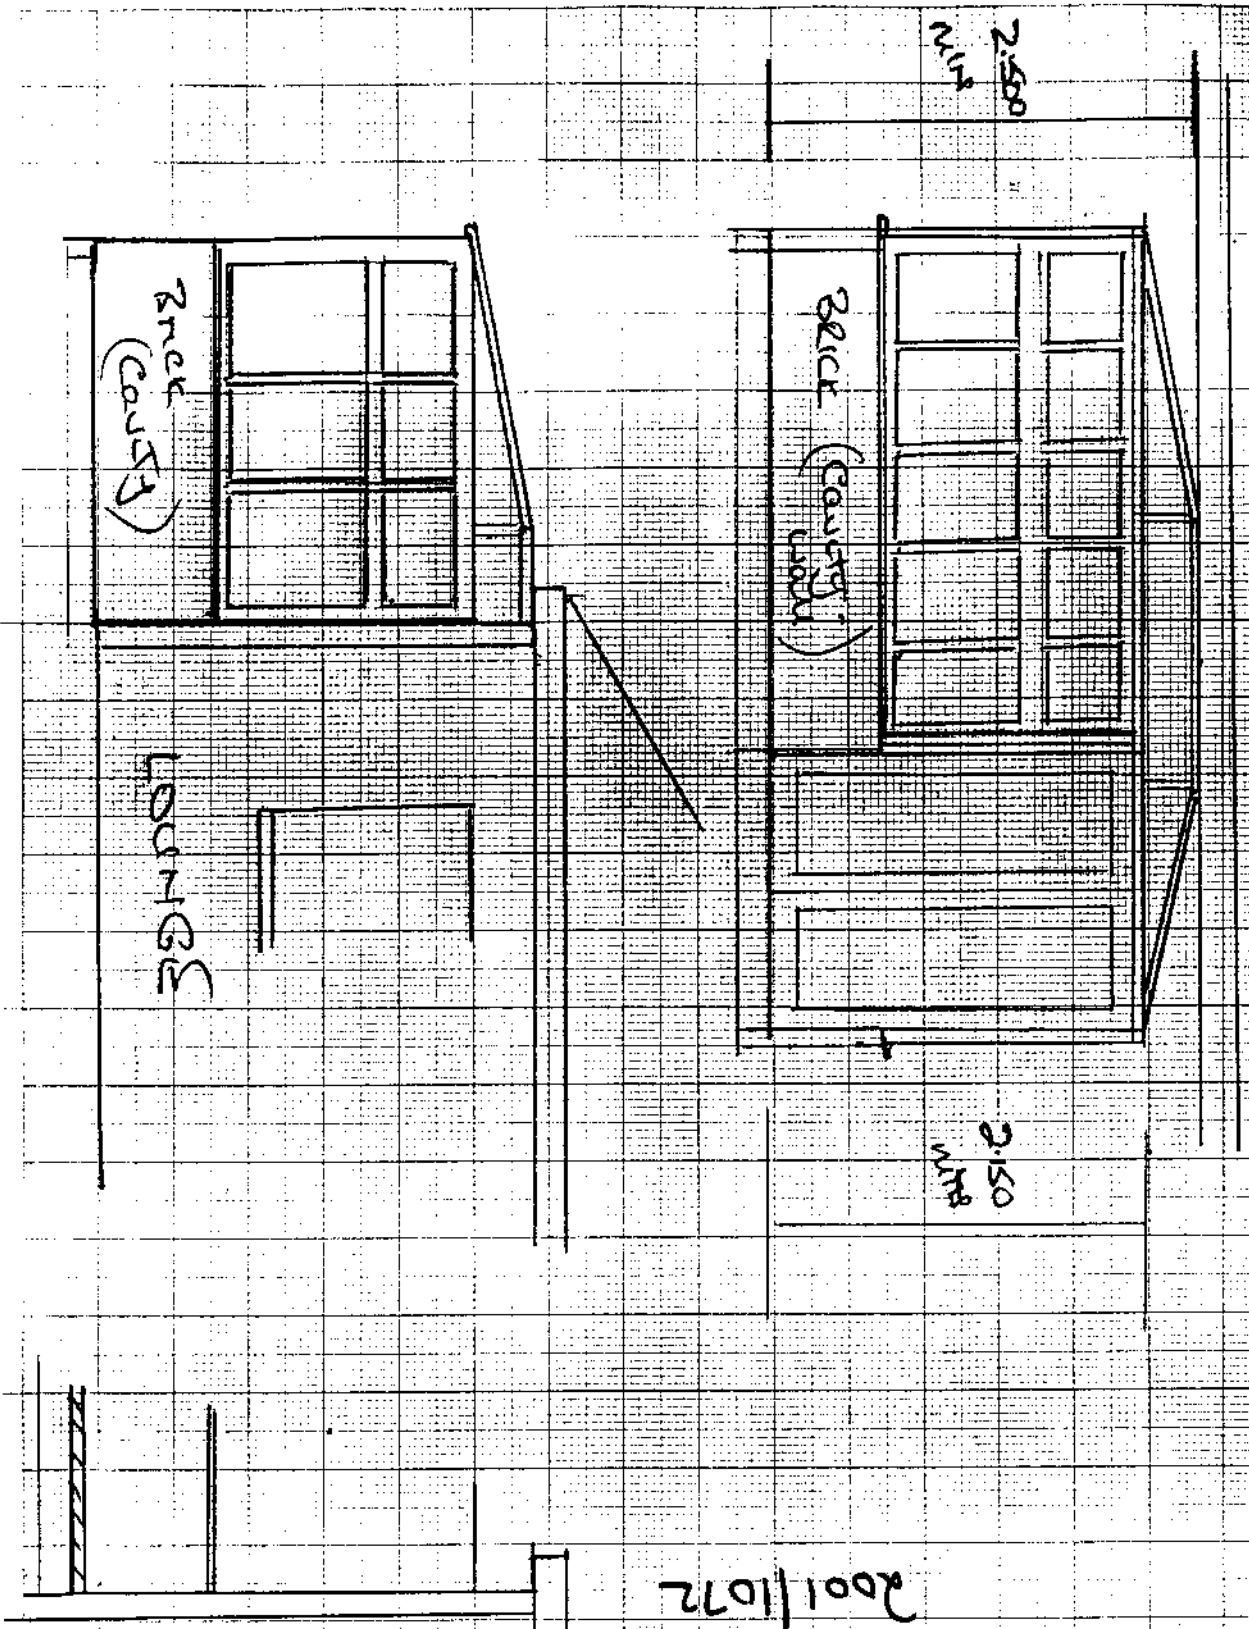 2.500
MIN
BRICK (CAVITY
WALL)
BRICK
(CAVITY)
LOUNGE
2.150
MIN
2001/1072